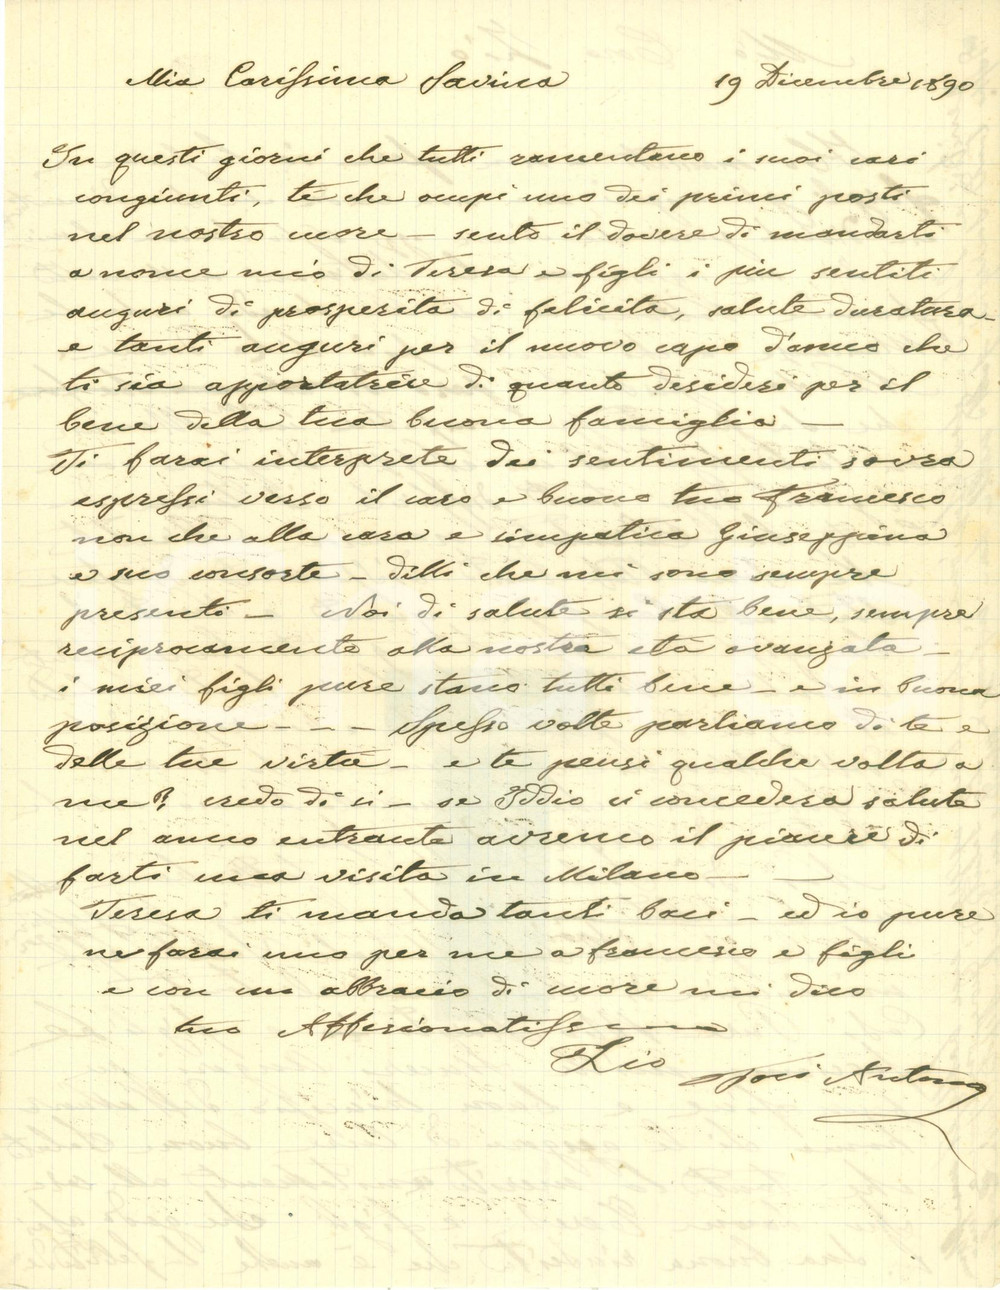 Mia Carissima Savina 19 Dicembre 1890
In questi giorni che tutti ramentano i suoi cari
congiunti, te che ocupi uno dei primi posti
nel nostro cuore – sento il dovere di mandarti
a nome mio di Teresa e figli i piu sentiti
auguri di prosperita di felicita, salute duratura –
e tanti auguri per il nuovo capo d'anno che
ti sia apportatrice di quanto desideri per il
bene della tua buona famiglia –
Ti farai interprete dei sentimenti sovra
espressi verso il caro e buono tuo Francesco
non che alla cara e simpatica Giuseppina
e suo consorte – dilli che mi sono sempre
presenti – Noi di salute si sta bene, sempre
reciprocamente alla nostra eta avanzata –
i miei figli pure stano tutti bene – e in buona
posizione – – – Spesso volte parliamo di te e
delle tue virtu – e te pensi qualche volta a
me? credo di si – se Iddio ci concedera salute
nel anno entrante avremo il piacere di
farti una visita in Milano – –
Teresa ti manda tanti baci – ed io pure
ne farai uno per me a francesco e figli
e con un abbracio di cuore mi dico
tuo Affesionatiss
Zio Antonio